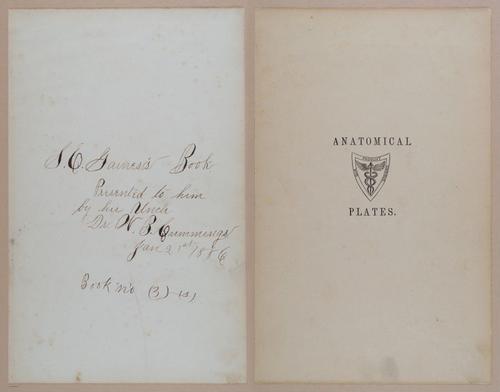 S. C. Gaines's Book
Presented to him
by his Uncle
Dr W. B. Cummings
Jan 21st 1886
Book No (3)
ANATOMICAL
PLATES.